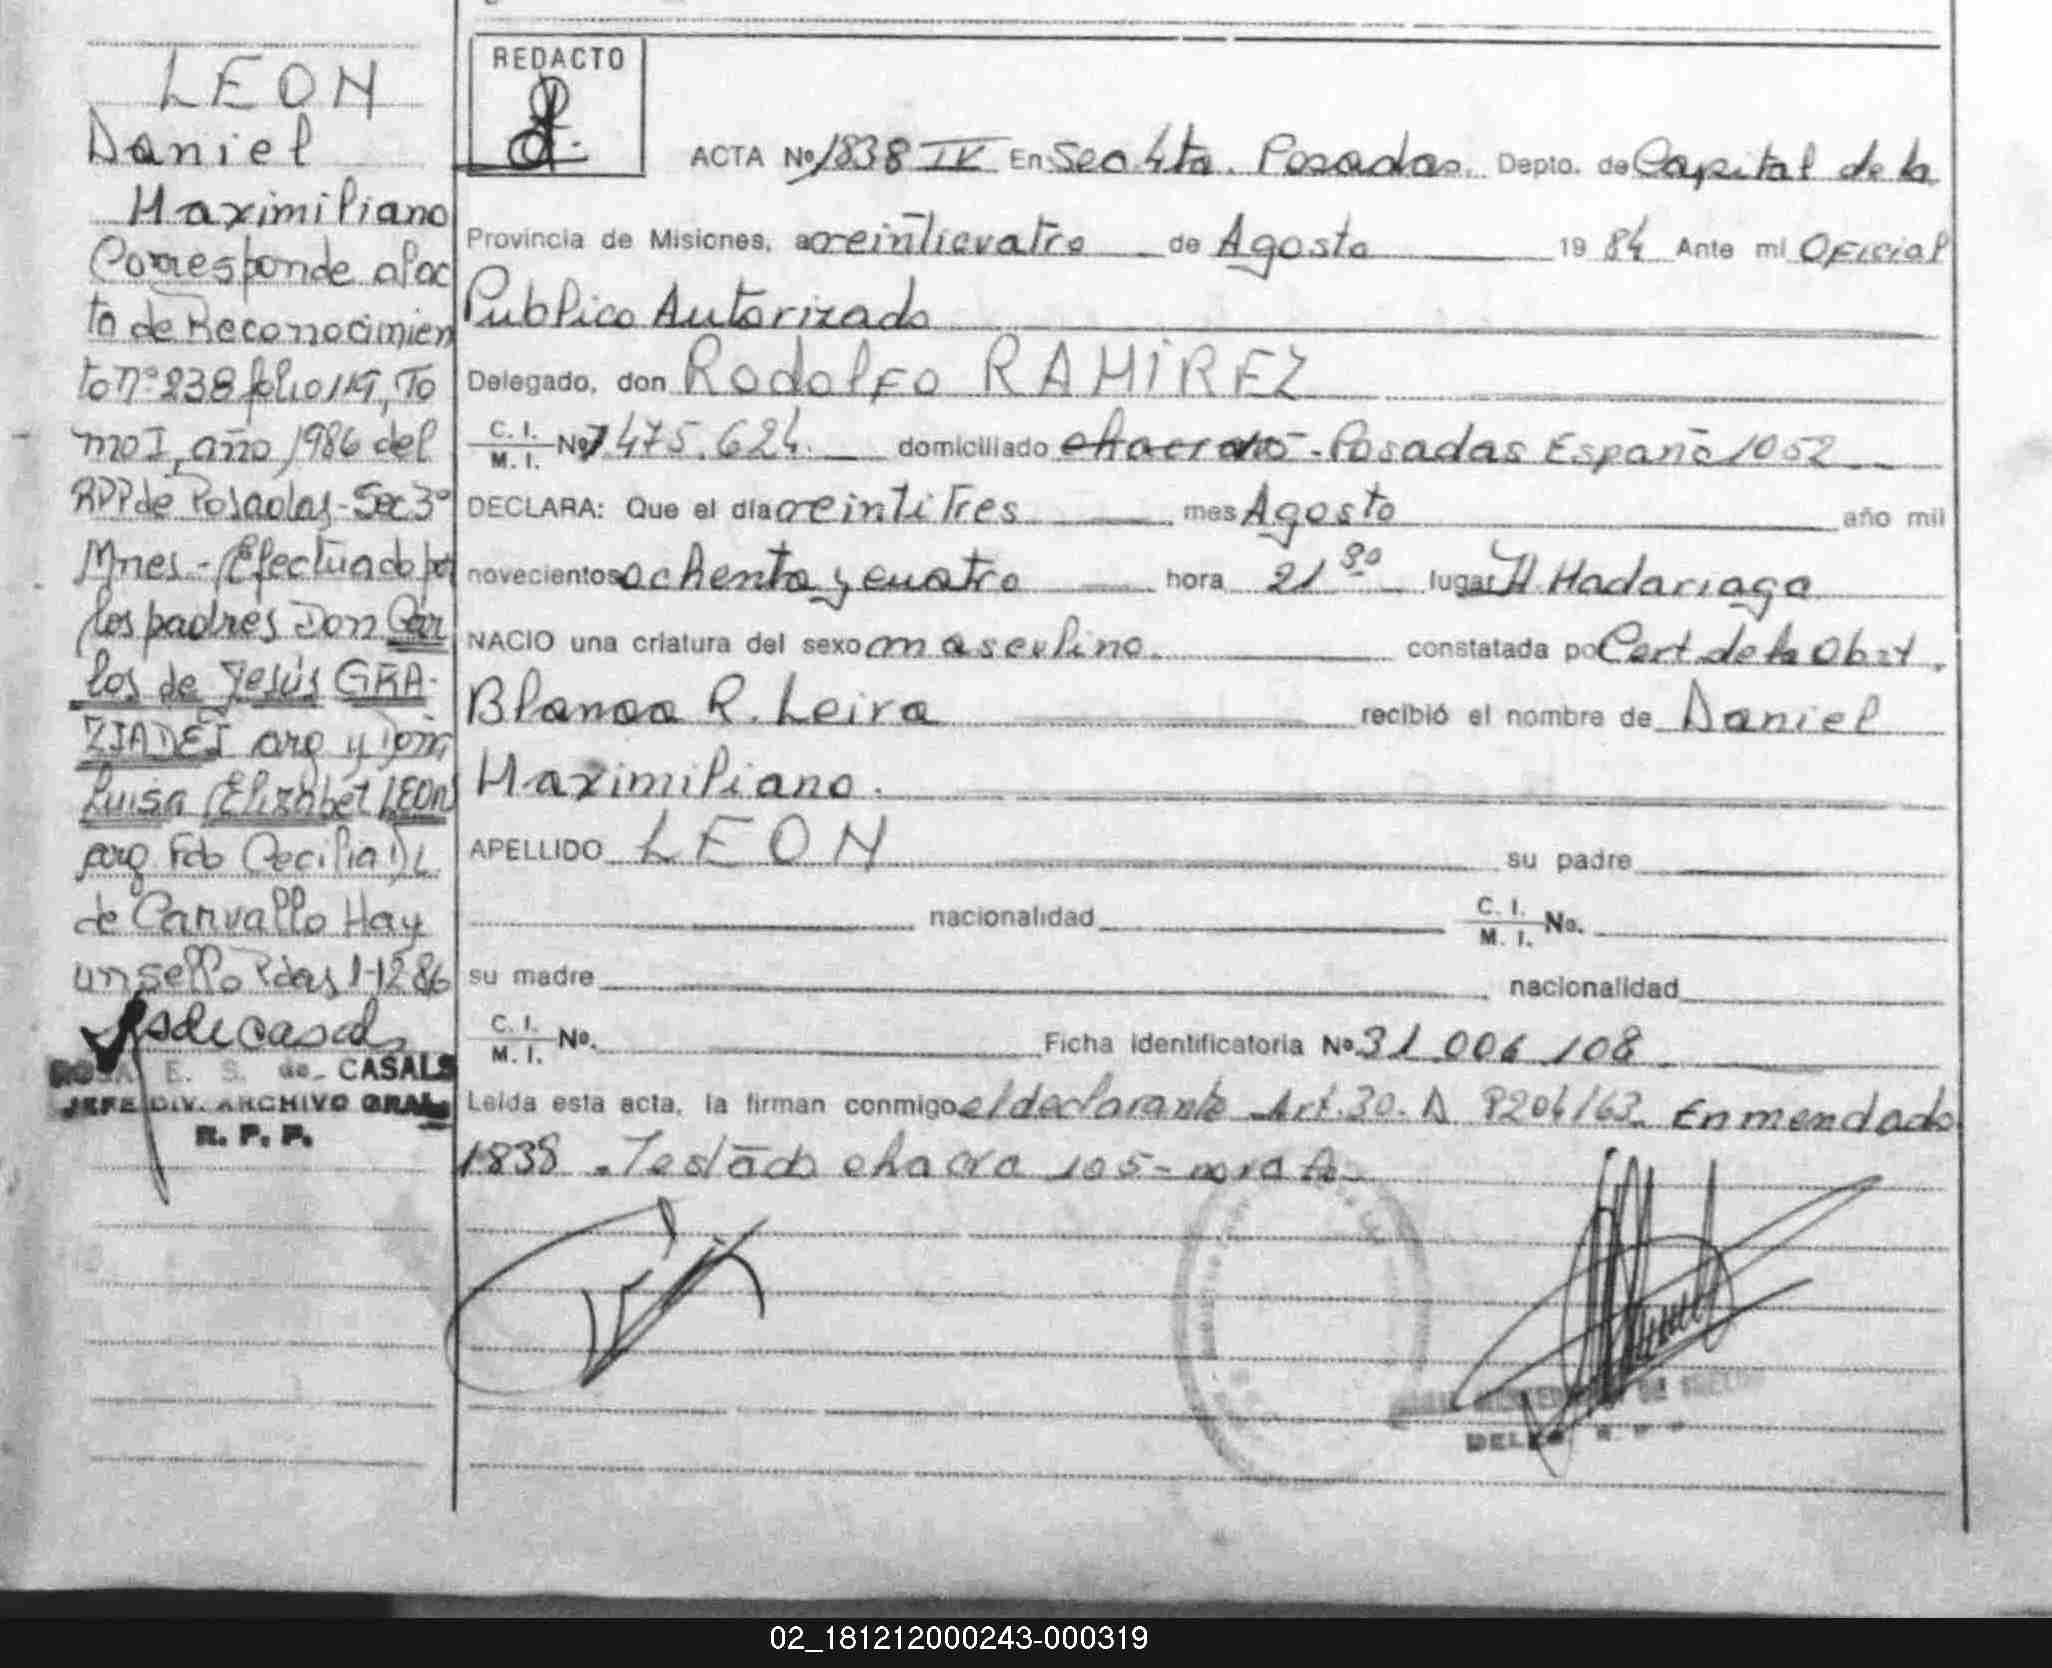 LEON
Daniel
Maximiliano
Corresponde al ac
to de Reconocimien
to nº 238 folio 119, To
mo I, año 1986 del
RPP de Posadas - Sec 3º
Mnes - Efectuado por
los padres Don Car
los de Jesús GRA-
ZIADEI arg y Doña
Luisa Elizabet LEON
arg Fdo Cecilia D L
de Carvallo Hay
un sello Pdas 1-12-86
ROSA E. S. de CASALS
JEFE DIV. ARCHIVO GRAL
R. P. P.
REDACTO
ACTA Nº 1838 IV En Sec 4ta. Posadas. Depto. de Capital de la
Provincia de Misiones, a veinticuatro de Agosto 19 84 Ante mi Oficial
Publico Autorizado
Delegado, don Rodolfo RAMIREZ
C. I. M. I. Nº 7.475.624. domiciliado chacra 105 - Posadas España 1052
DECLARA: Que el día veintitres mes Agosto año mil
novecientos ochenta y cuatro hora 21 30 lugar H. Madariaga
NACIO una criatura del sexo masculino constatada por Cert. de la Obst.
Blanca R. Leiva recibió el nombre de Daniel
Maximiliano.
APELLIDO LEON su padre
nacionalidad C. I. M. I. No.
su madre nacionalidad
C. I. M. I. No. Ficha Identificatoria Nº 31.006.108
Leída esta acta, la firman conmigo el declarante Art. 30. D 8204/63. Enmendado
1838. Testado chacra 105-
02_181212000243-000319